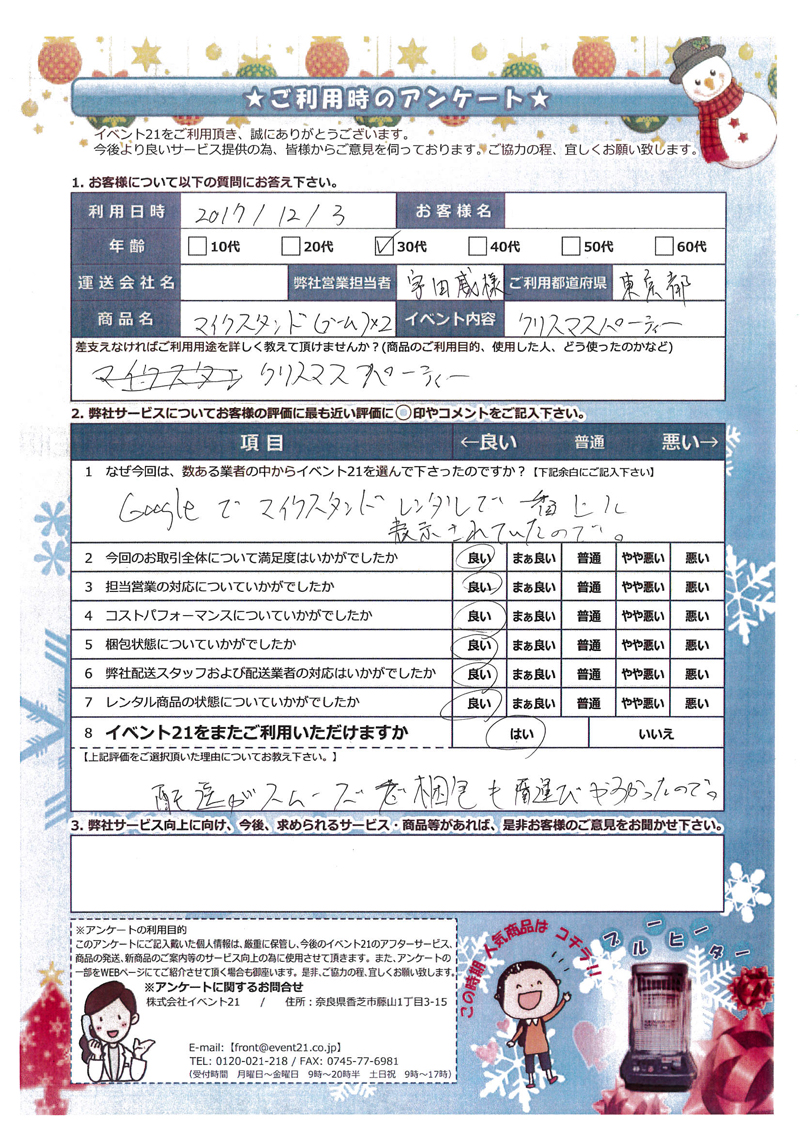 ★ご利用時のアンケート★
イベント21をご利用頂き、誠にありがとうございます。
今後より良いサービス提供の為、皆様からご意見を伺っております。ご協力の程、宜しくお願い致します。
1. お客様について以下の質問にお答え下さい。
利用日時 2017/12/3 お客様名
年齢 10代 20代 30代 40代 50代 60代
運送会社名 弊社営業担当者 様 ご利用都道府県 東京都
商品名 マイクスタンド(ブーム)×2 イベント内容 クリスマスパーティー
差支えなければご利用用途を詳しく教えて頂けませんか?(商品のご利用目的、使用した人、どう使ったのかなど)
マイクスタン クリスマスパーティー
2. 弊社サービスについてお客様の評価に最も近い評価に○印やコメントをご記入下さい。
項目 ←良い 普通 悪い→
1 なぜ今回は、数ある業者の中からイベント21を選んで下さったのですか?【下記余白にご記入下さい】
Googleでマイクスタンドレンタルで一番上に
表示されていたので。
2 今回のお取引全体について満足度はいかがでしたか 良い まぁ良い 普通 やや悪い 悪い
3 担当営業の対応についていかがでしたか 良い まぁ良い 普通 やや悪い 悪い
4 コストパフォーマンスについていかがでしたか 良い まぁ良い 普通 やや悪い 悪い
5 梱包状態についていかがでしたか 良い まぁ良い 普通 やや悪い 悪い
6 弊社配送スタッフおよび配送業者の対応はいかがでしたか 良い まぁ良い 普通 やや悪い 悪い
7 レンタル商品の状態についていかがでしたか 良い まぁ良い 普通 やや悪い 悪い
8 イベント21をまたご利用いただけますか はい いいえ
【上記評価をご選択頂いた理由についてお教え下さい。】
配達がスムーズで梱包も運びやすかったので。
3. 弊社サービス向上に向け、今後、求められるサービス・商品等があれば、是非お客様のご意見をお聞かせ下さい。
※アンケートの利用目的
このアンケートにご記入戴いた個人情報は、厳重に保管し、今後のイベント21のアフターサービス、
商品の発送、新商品のご案内等のサービス向上の為に使用させて頂きます。また、アンケートの
一部をWEBページにてご紹介させて頂く場合も御座います。是非、ご協力の程、宜しくお願い致します。
※アンケートに関するお問合せ
株式会社イベント21 / 住所:奈良県香芝市藤山1丁目3-15
E-mail:【front@event21.co.jp】
TEL: 0120-021-218 / FAX: 0745-77-6981
(受付時間 月曜日~金曜日 9時~20時半 土日祝 9時~17時)
この時期人気商品はコチラ!!
ブルーヒーター